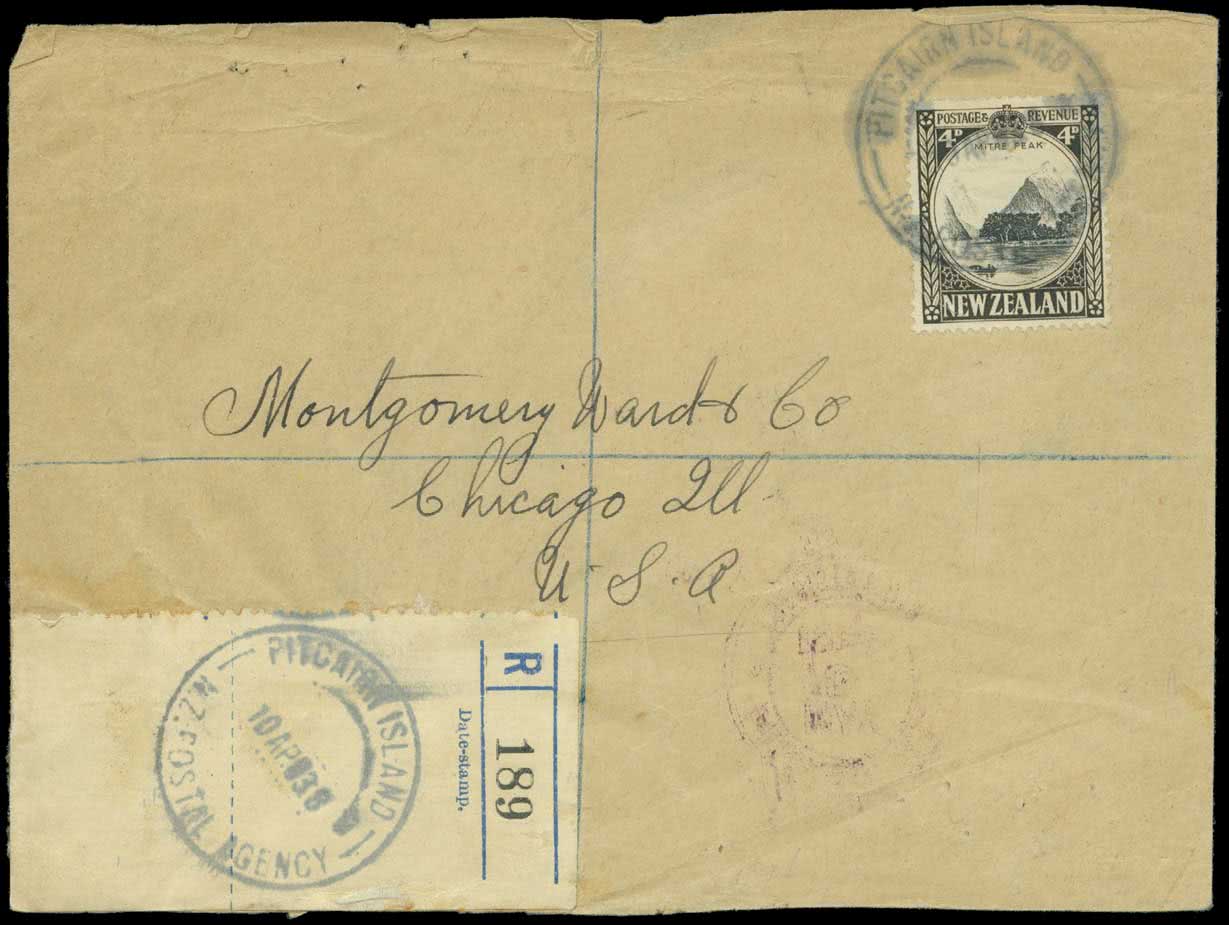 PITCAIRN ISLAND
POSTAGE & REVENUE
4D 4D
MITRE PEAK
NEW ZEALAND
Montgomery Ward & Co
Chicago Ill
U. S. A
PITCAIRN ISLAND
10 AP 38
N.Z. POSTAL AGENCY
R
189
Date-stamp.